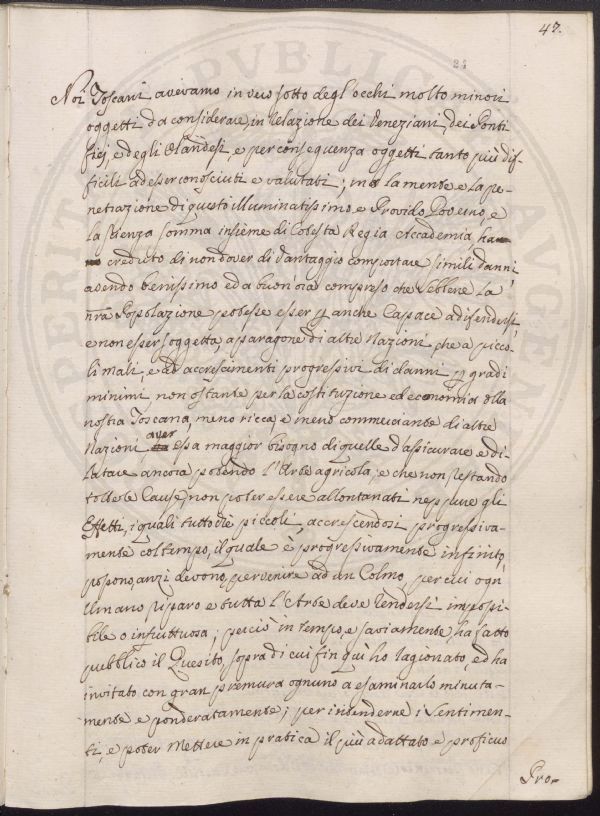 47.
24
Noi Toscani avevamo in vero sotto degl'occhi molto minori
oggetti da considerare, in relazione dei Veneziani, dei Ponti
ficj, e degli Olandesi, e per conseguenza oggetti tanto più dif-
ficili ad esser conosciuti e valutati; ma la mente e la pe-
netrazione di questo illuminatissimo, e Provido Governo, e
la scienza somma insieme di cotesta Regia Accademia ha
creduto di non dover di vantaggio comportare simili danni
avendo benissimo ed a buon'ora compreso che sebbene la
nr̃a Popolazione potesse esser p anche capace a difendersi,
e non esser soggetta, a paragone di altre Nazioni, che a picco-
li mali, e ad accrescimenti progressivi di danni p gradi
minimi, non ostante per la costituzione ed economia della
nostra Toscana, meno ricca, e meno commerciante di altre
Nazioni aver essa maggior bisogno di quelle d'assicurare e di-
latare ancora potendo l'Arte agricola; e che non restando
tolte le Cause, non poter essere allontanati neppure gli
Effetti, i quali tuttochè piccoli, accrescendosi progressiva-
mente col tempo, il quale è progressivamente infinito,
possono, anzi devono, pervenire ad un Colmo, per cui ogn'
Umano riparo e tutta l'Arte deve rendersi impossi-
bile o infruttuosa; perciò in tempo, e saviamente ha fatto
pubblico il Quesito, sopra di cui fin quì ho ragionato, ed ha
invitato con gran premura ognuno a esaminarlo minuta-
mente e ponderatamente; per intenderne i sentimen-
ti, e poter mettere in pratica il più adattato e proficuo
Pro-